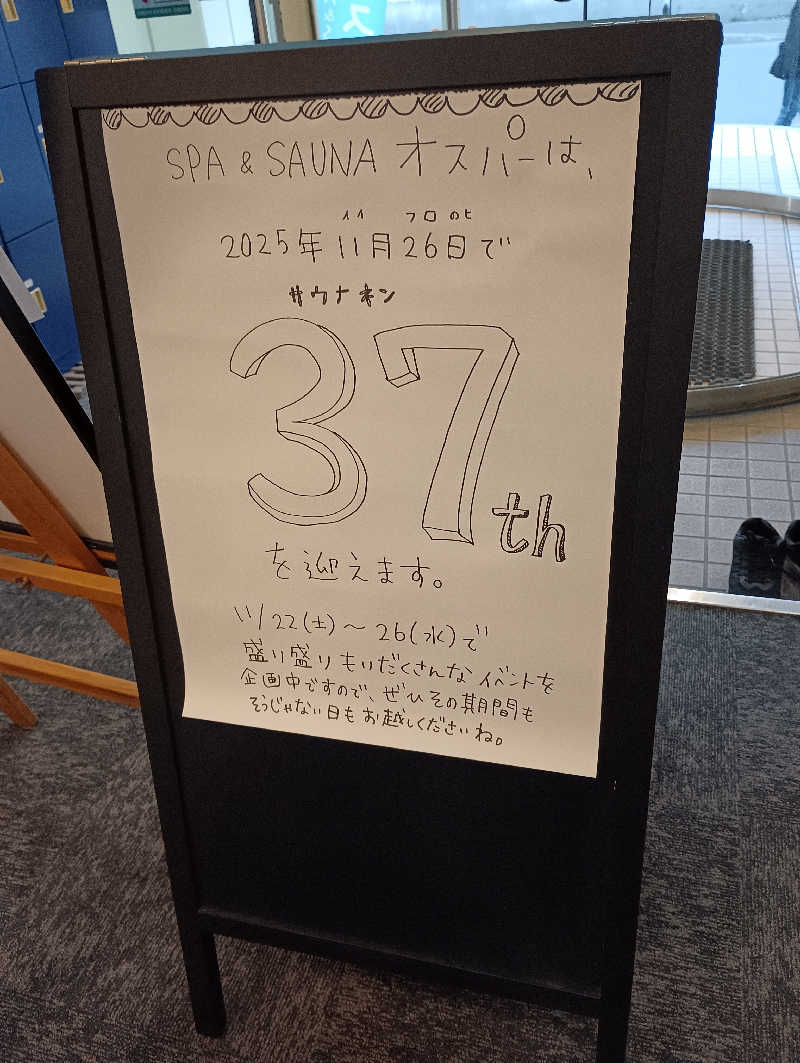 SPA & SAUNA オスパーは、
イイ フロ のヒ
2025年 11月26日で
サウナネン
37th
を迎えます。
11/22(土)～26(水)で
盛り盛りもりだくさんなイベントを
企画中ですので、ぜひその期間も
そうじゃない日もお越しくださいね。
ス